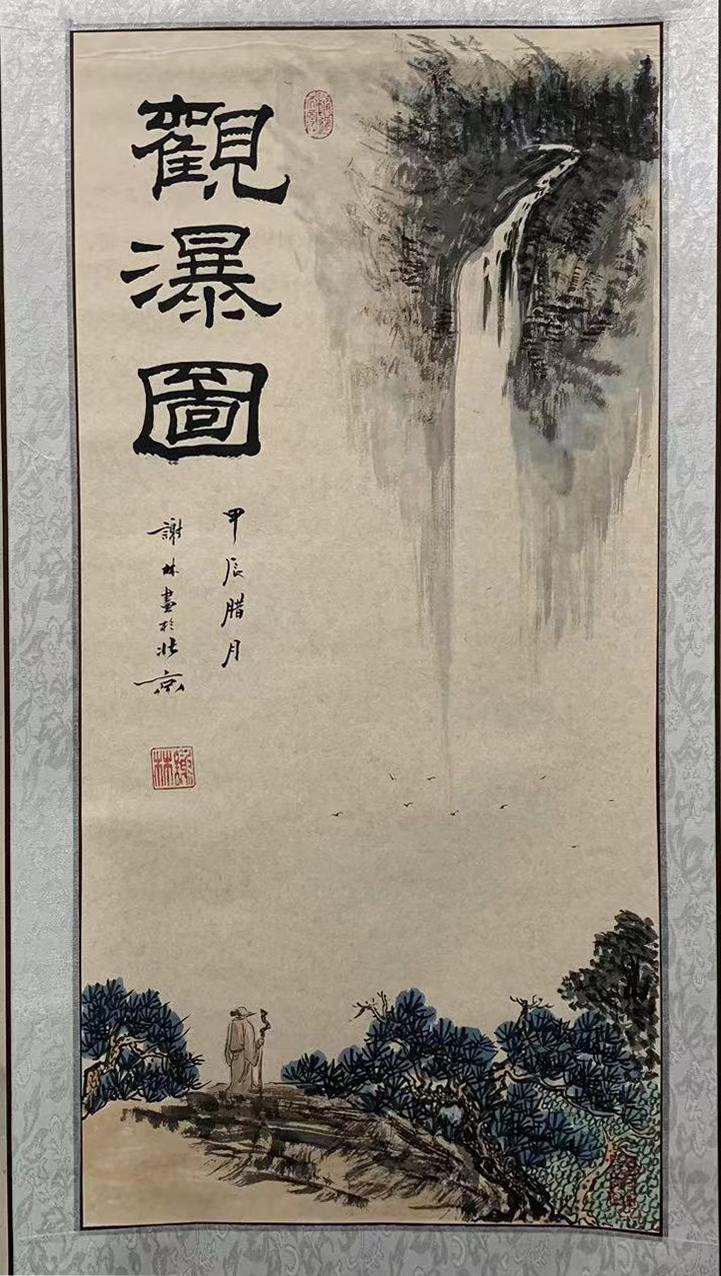 觀瀑圖
甲辰腊月
謝林畫於北京
謝林